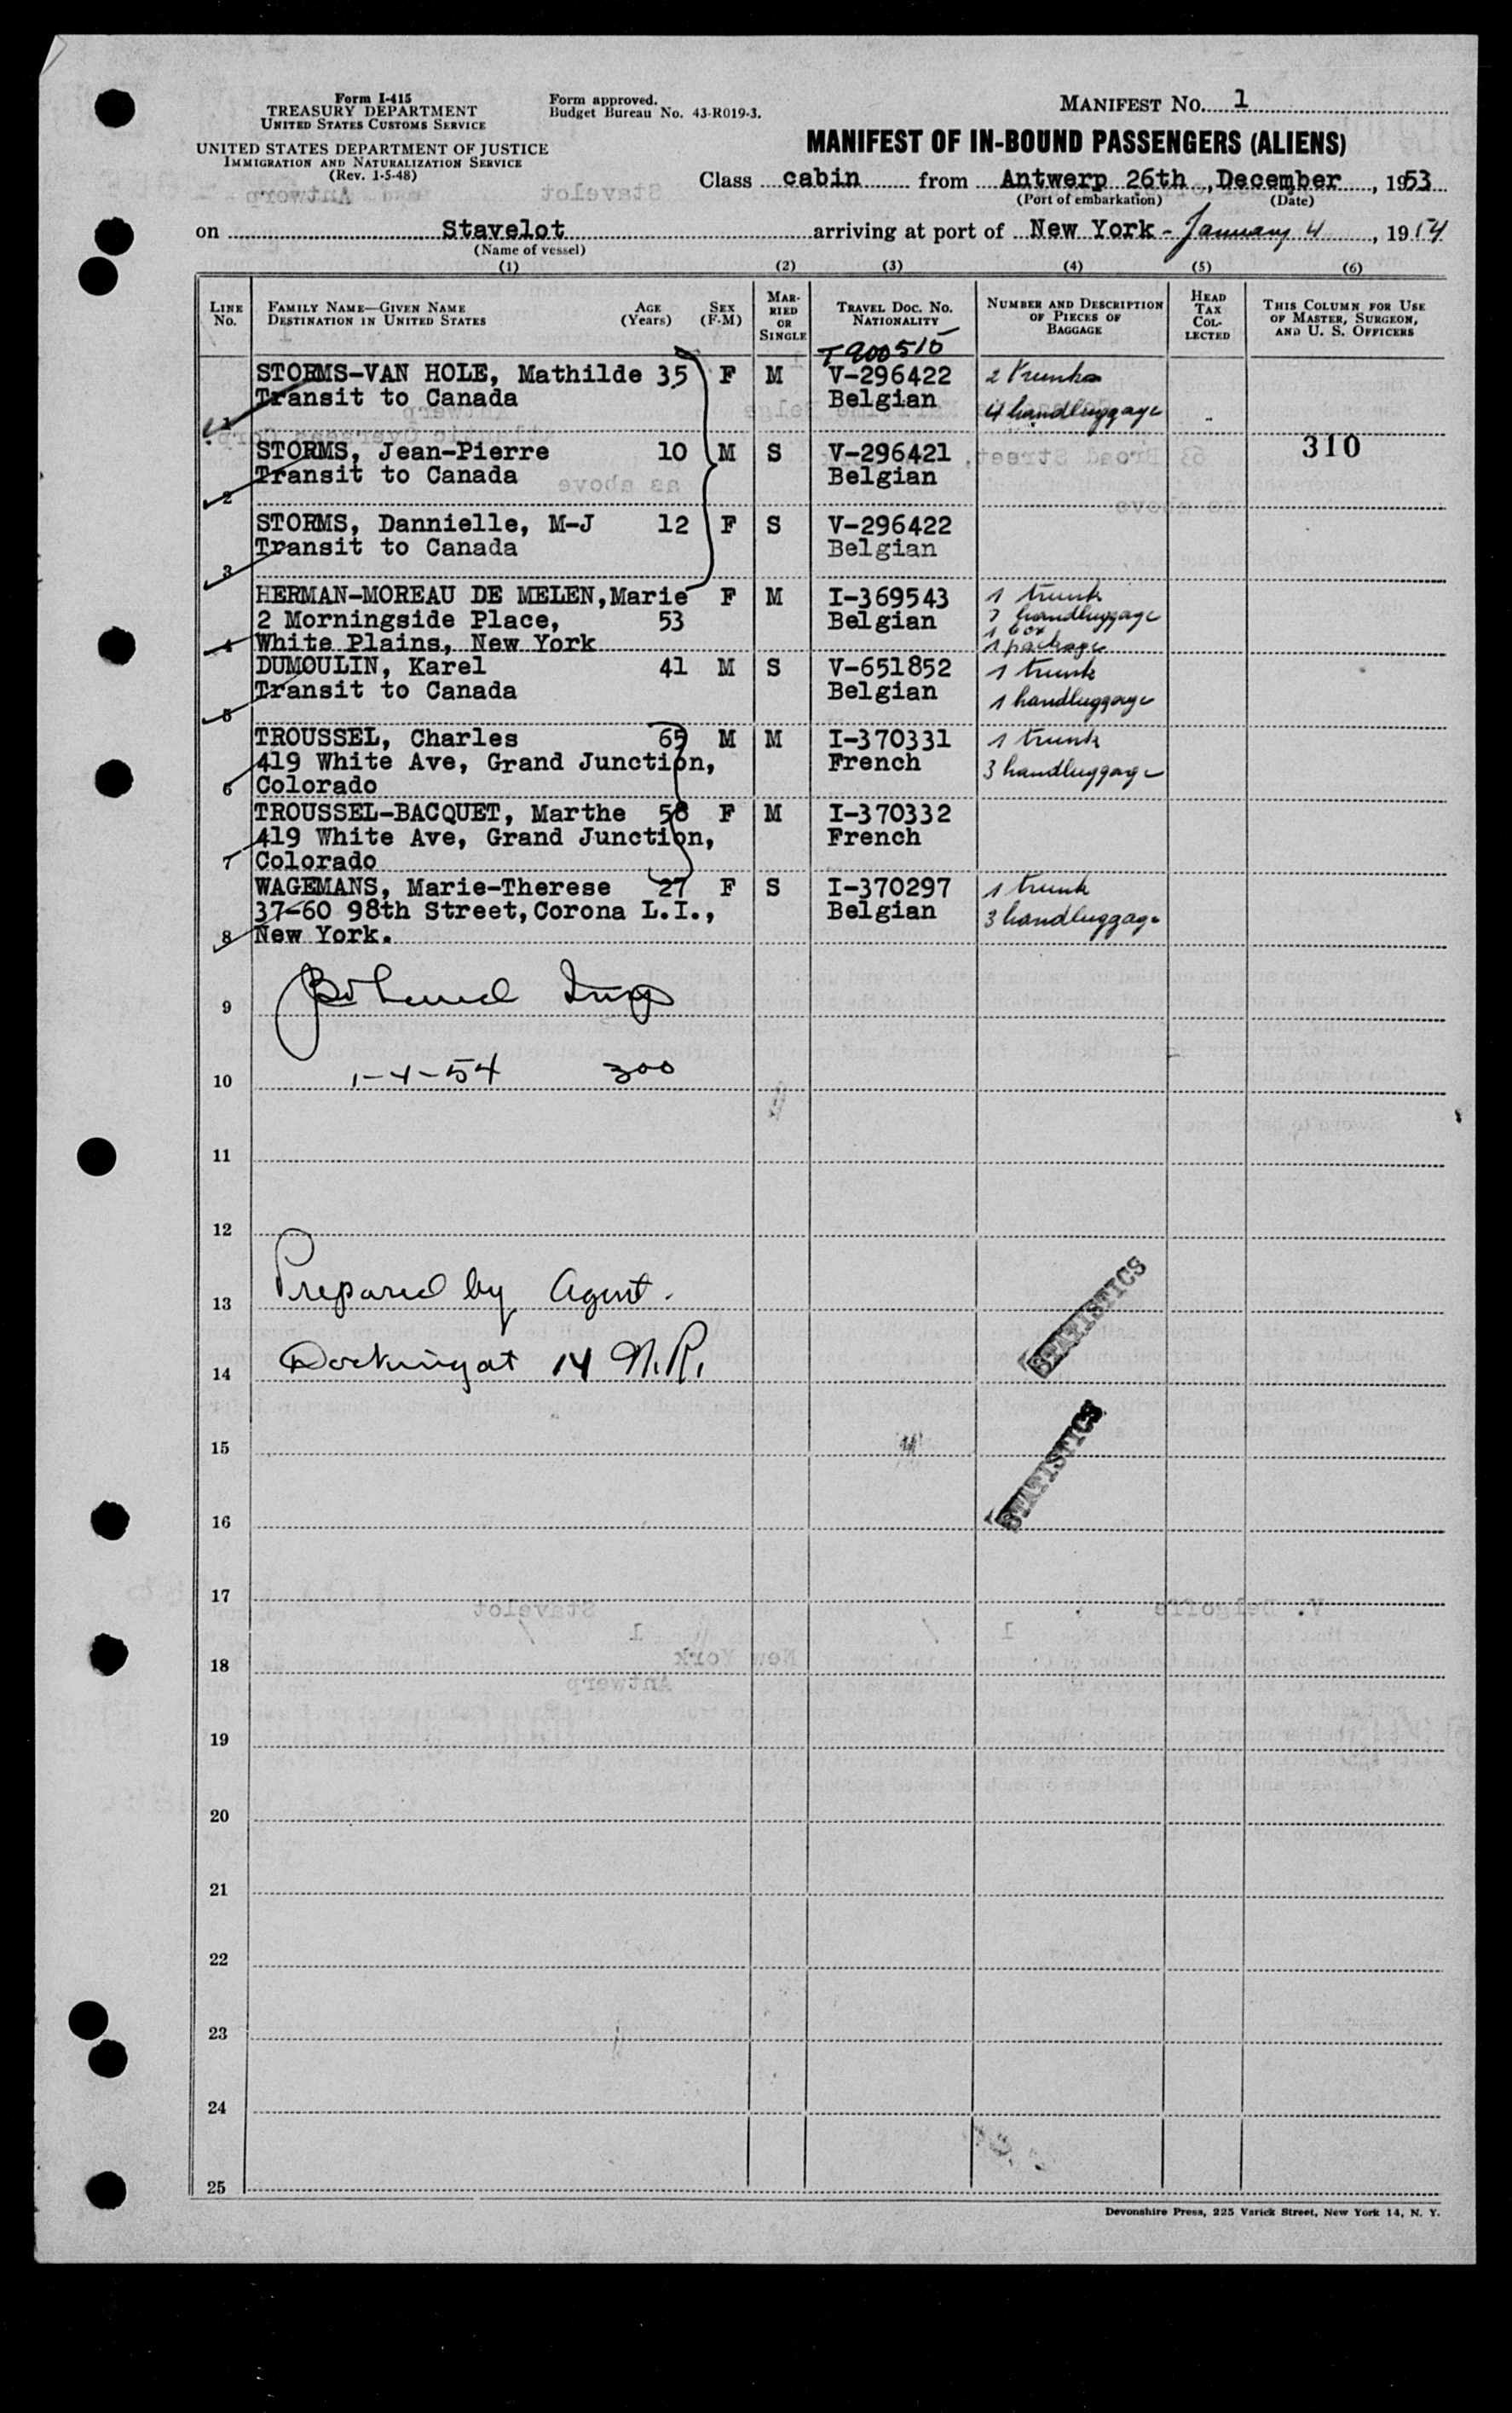 Form I-415
TREASURY DEPARTMENT
UNITED STATES CUSTOMS SERVICE
UNITED STATES DEPARTMENT OF JUSTICE
IMMIGRATION AND NATURALIZATION SERVICE
(Rev. 1-5-48)
Form approved.
Budget Bureau No. 43-R019-3.
MANIFEST No. 1
MANIFEST OF IN-BOUND PASSENGERS (ALIENS)
Class cabin from Antwerp 26th, December, 1953
(Port of embarkation) (Date)
on Stavelot arriving at port of New York - January 4, 1954
(Name of vessel)
(1) (2) (3) (4) (5) (6)
LINE No. FAMILY NAME—GIVEN NAME DESTINATION IN UNITED STATES AGE (Years) SEX (F-M) MARRIED OR SINGLE TRAVEL DOC. No. NATIONALITY NUMBER AND DESCRIPTION OF PIECES OF BAGGAGE HEAD TAX COLLECTED THIS COLUMN FOR USE OF MASTER, SURGEON, AND U. S. OFFICERS
T 900515
STORMS-VAN HOLE, Mathilde 35 F M V-296422 2 trunks
1 Transit to Canada Belgian 4 handluggage
310
STORMS, Jean-Pierre 10 M S V-296421
2 Transit to Canada Belgian
STORMS, Dannielle, M-J 12 F S V-296422
3 Transit to Canada Belgian
HERMAN-MOREAU DE MELEN, Marie F M I-369543 1 trunk
2 Morningside Place, 53 Belgian handluggage
1 box
4 White Plains, New York 1 package
DUMOULIN, Karel 41 M S V-651852 1 trunk
5 Transit to Canada Belgian 1 handluggage
TROUSSEL, Charles 65 M M I-370331 1 trunk
419 White Ave, Grand Junction, French 3 handluggage
6 Colorado
TROUSSEL-BACQUET, Marthe 58 F M I-370332
419 White Ave, Grand Junction, French
7 Colorado
WAGEMANS, Marie-Therese 27 F S I-370297 1 trunk
37-60 98th Street, Corona L.I., Belgian 3 handluggage
8 New York.
9
10 1-4-54 300
11
12
13 Prepared by Agent.
STATISTICS
14 Docking at 14 N.R.
15
STATISTICS
16
17
18
19
20
21
22
23
24
25
Devonshire Press, 225 Varick Street, New York 14, N. Y.